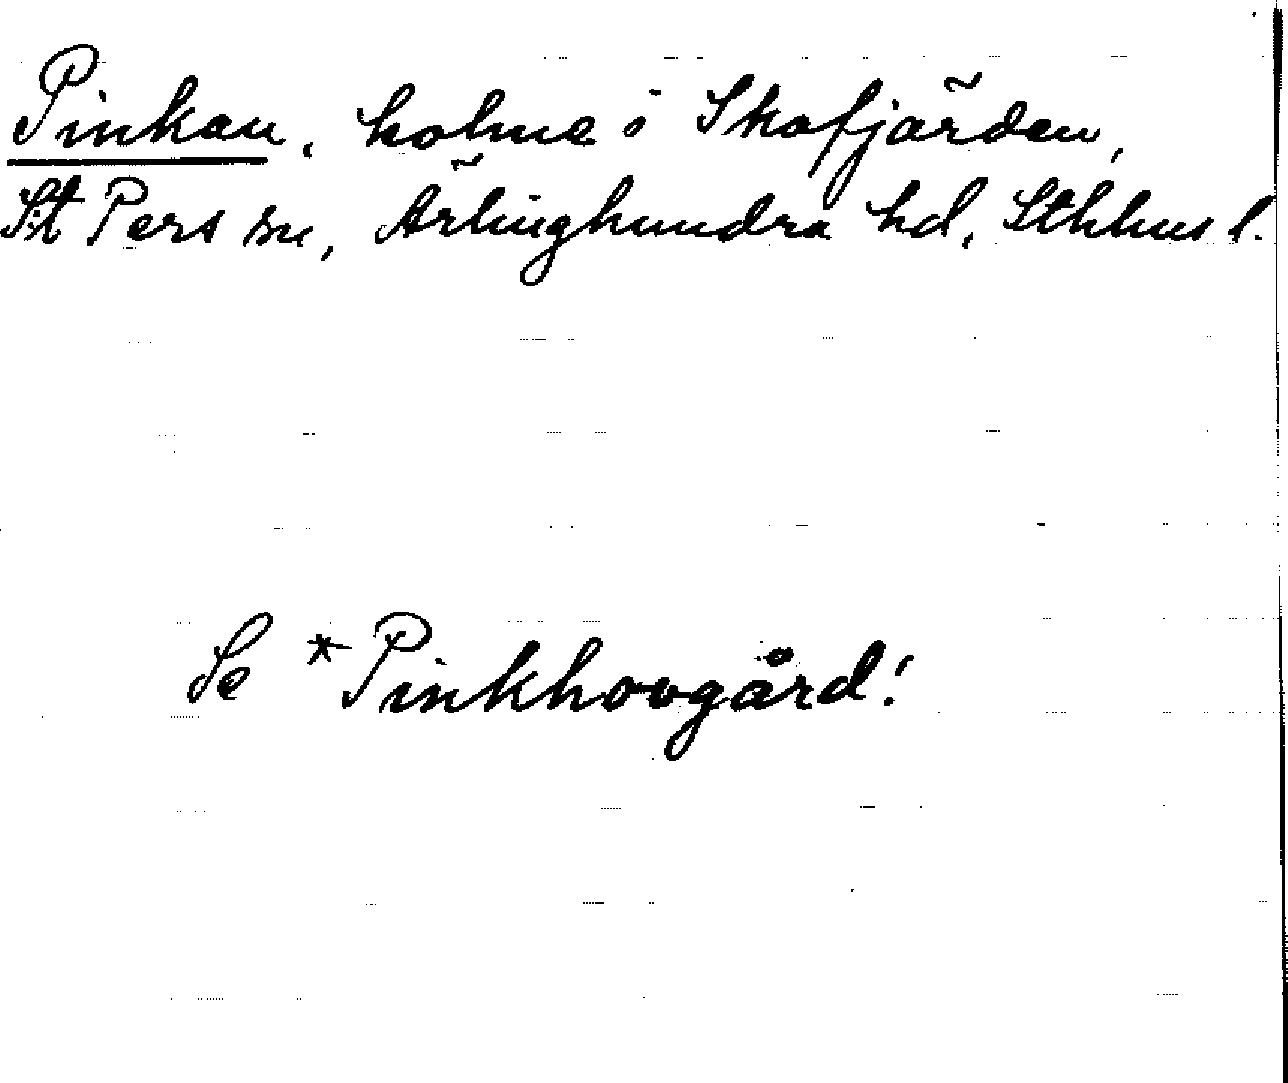 Pinkan, holme i Skofjärden,
St Pers sn, Ärlinghundra hd, Sthlms l.
Se *Pinkhovgård!